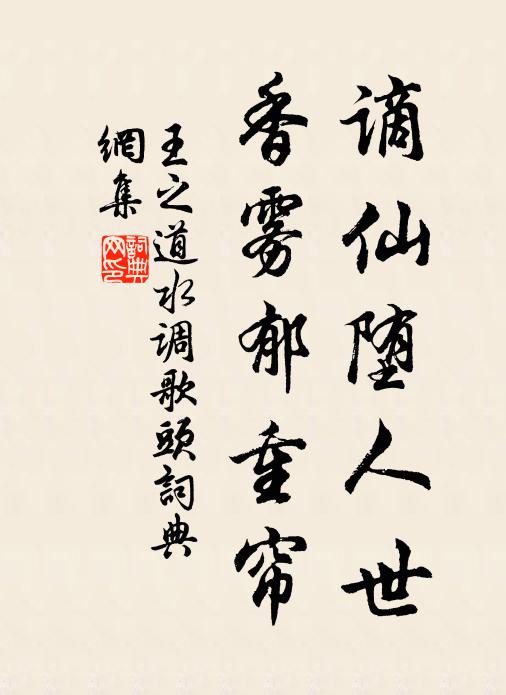 谪仙堕人世
香雾郁重帘
王之道水调歌頭詞典
網集
詞典網印